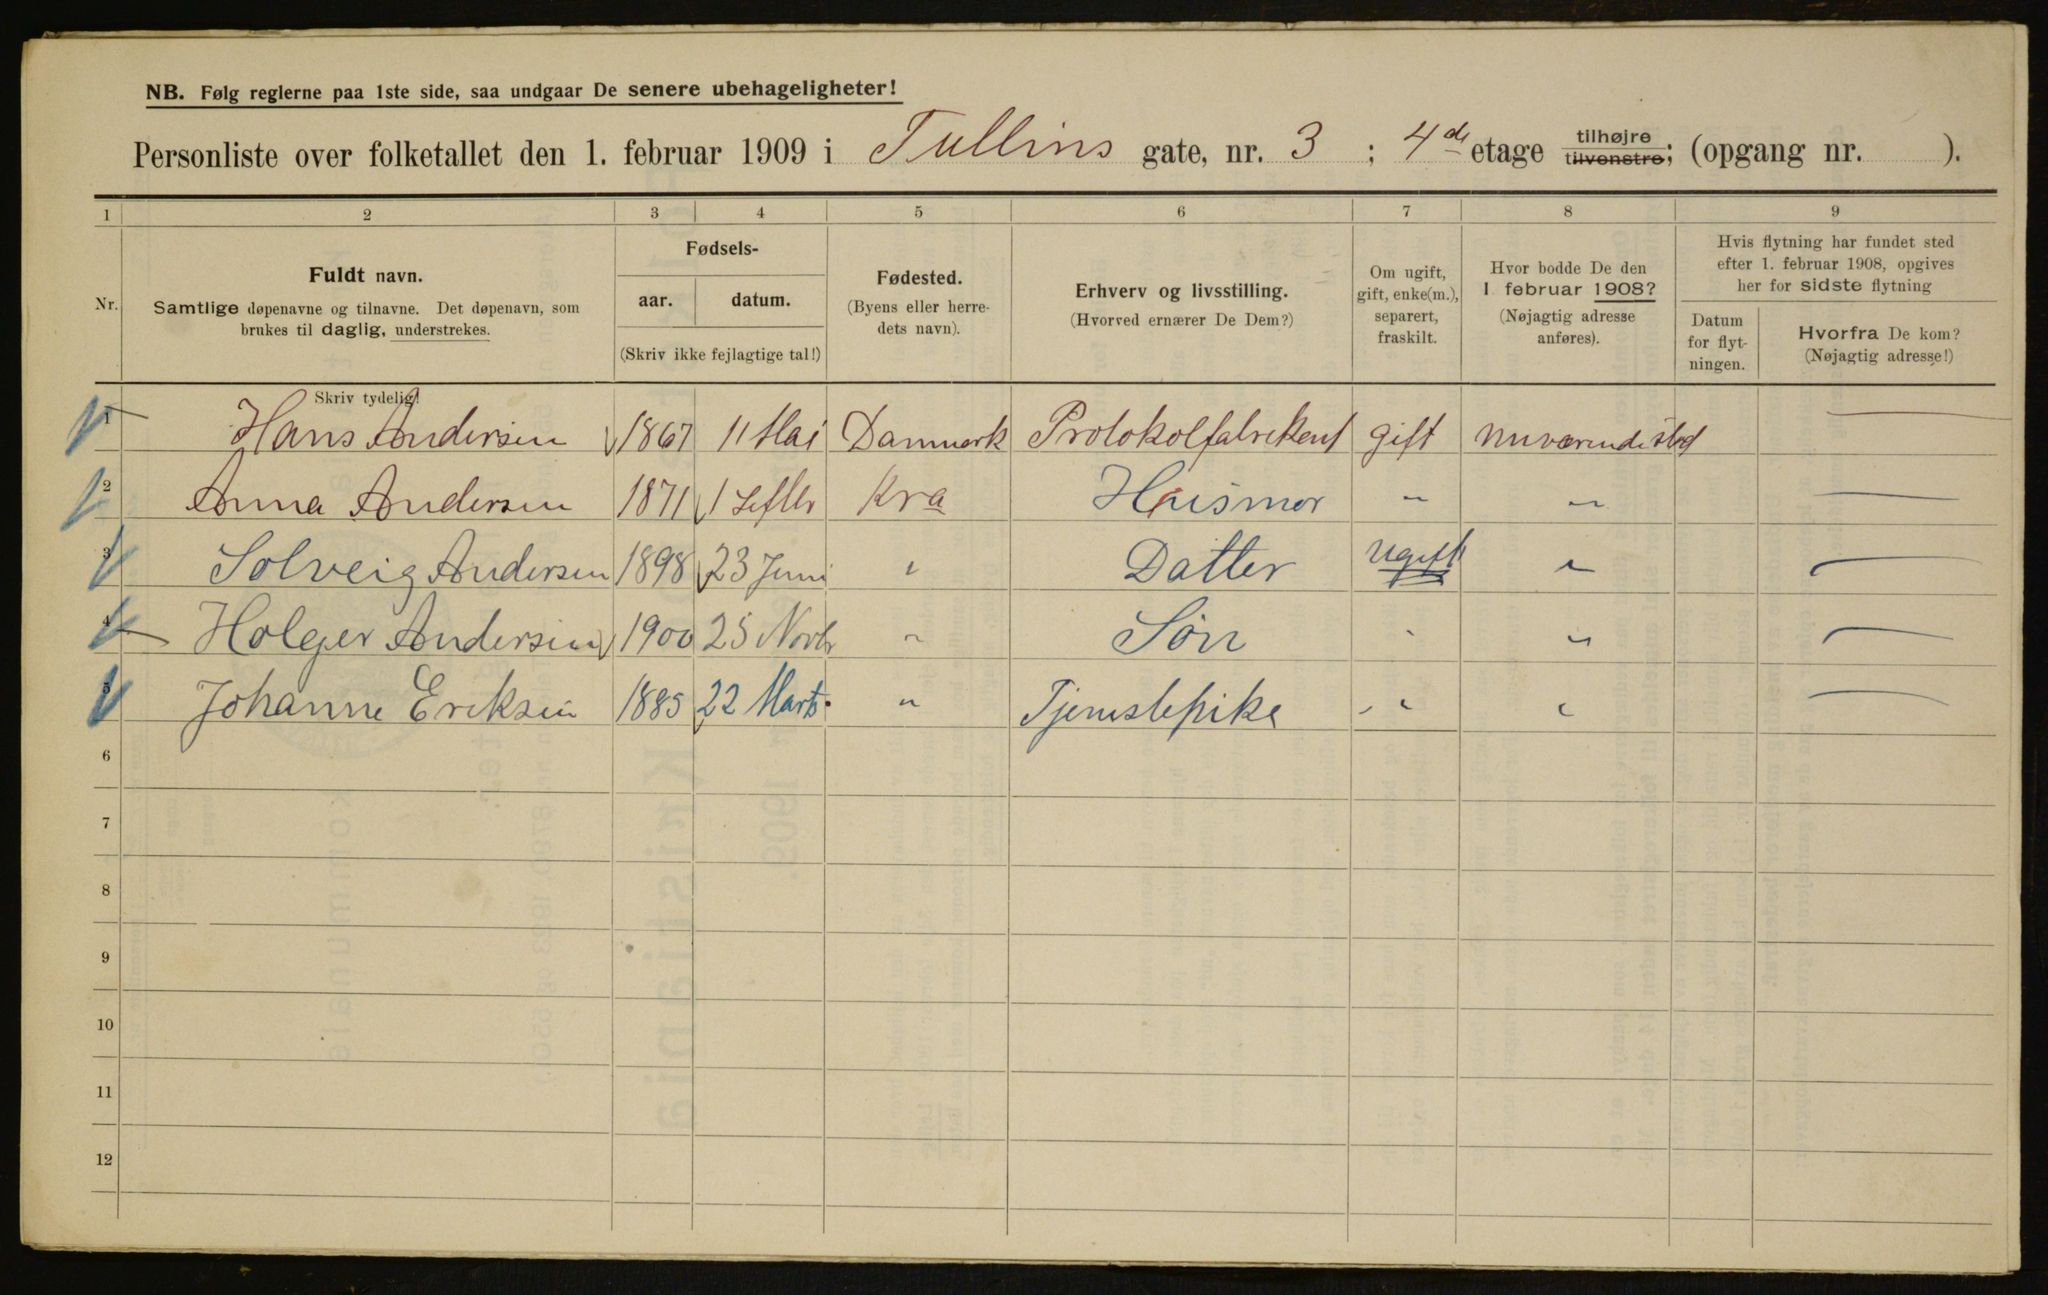 NB. Følg reglerne paa 1ste side, saa undgaar De senere ubehageligheter!
Personliste over folketallet den 1. februar 1909 i Tullins gate, nr. 3 ; 4de etage tilhøjre tilvenstre; (opgang nr. ).
1 2 3 4 5 6 7 8 9
Nr.
Fuldt navn.
Samtlige døpenavne og tilnavne. Det døpenavn, som
brukes til daglig, understrekes.
Fødsels-
aar. datum.
(Skriv ikke fejlagtige tal!)
Fødested.
(Byens eller herre-
dets navn).
Erhverv og livsstilling.
(Hvorved ernærer De Dem?)
Om ugift,
gift, enke(m.),
separert,
fraskilt.
Hvor bodde De den
1. februar 1908?
(Nøjagtig adresse
anføres).
Hvis flytning har fundet sted
efter 1. februar 1908, opgives
her for sidste flytning
Datum
for flyt-
ningen.
Hvorfra De kom?
(Nøjagtig adresse!)
Skriv tydelig!
1 Hans Andersen 1867 11 Mai Danmark Protokolfabrikant gift nuværende sted —
2 Anna Andersen 1871 1 Septbr Kra Husmor " " —
3 Solveig Andersen 1898 23 Juni " Datter Ugift " —
4 Holger Andersen 1900 25 Novbr " Søn " " —
5 Johanne Eriksen 1885 22 Marts " Tjenestepike " " —
6
7
8
9
10
11
12